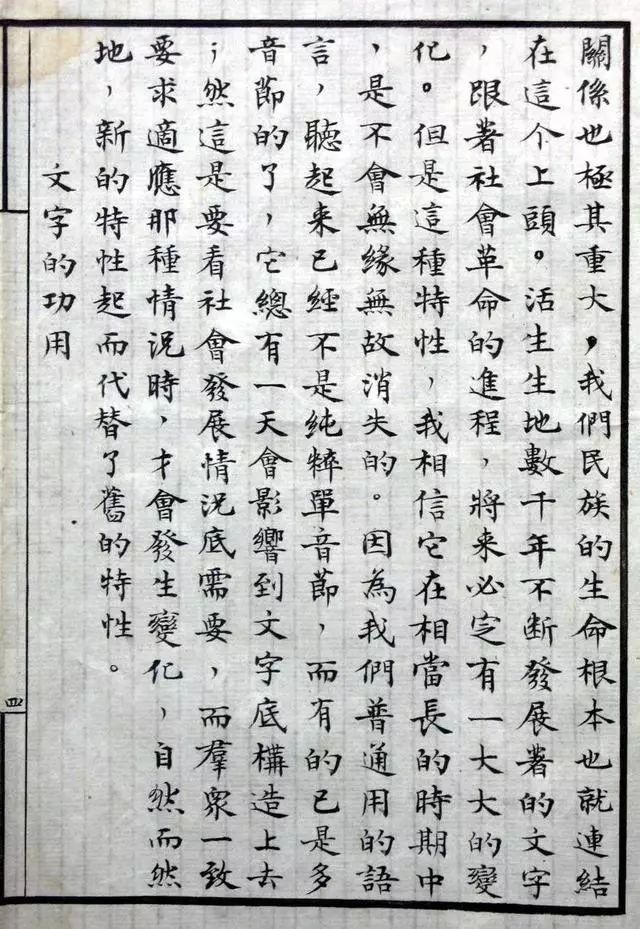 關係也極其重大，我們民族的生命根本也就連結
在這个上頭。活生生地數千年不断發展着的文字
，跟著社會革命的進程，將来必定有一大大的變
化。但是這種特性，我相信它在相當長的時期中
，是不會無緣無故消失的。因為我們普通用的語
言，聽起来已經不是純粹單音節，而有的已是多
音節的了，它總有一天會影響到文字底構造上去
；然這是要看社會發展情況底需要，而羣衆一致
要求適應那種情況時，才會發生變化，自然而然
地，新的特性起而代替了舊的特性。
文字的功用
四